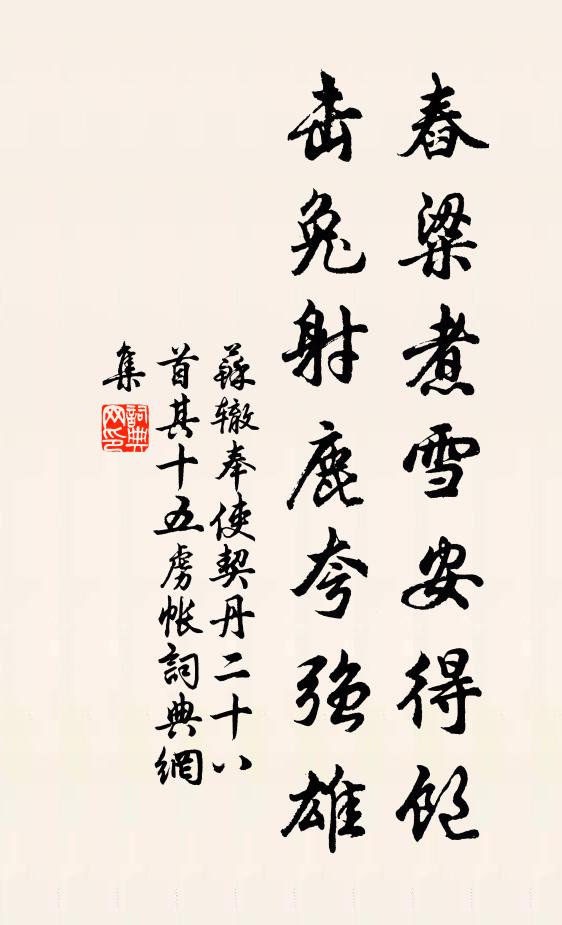 舂粱煮雪安得飽
击兔射鹿夸強雄
蘇辙奉使契丹二十八
首其十五虏帐詞典網
集
詞典
网印